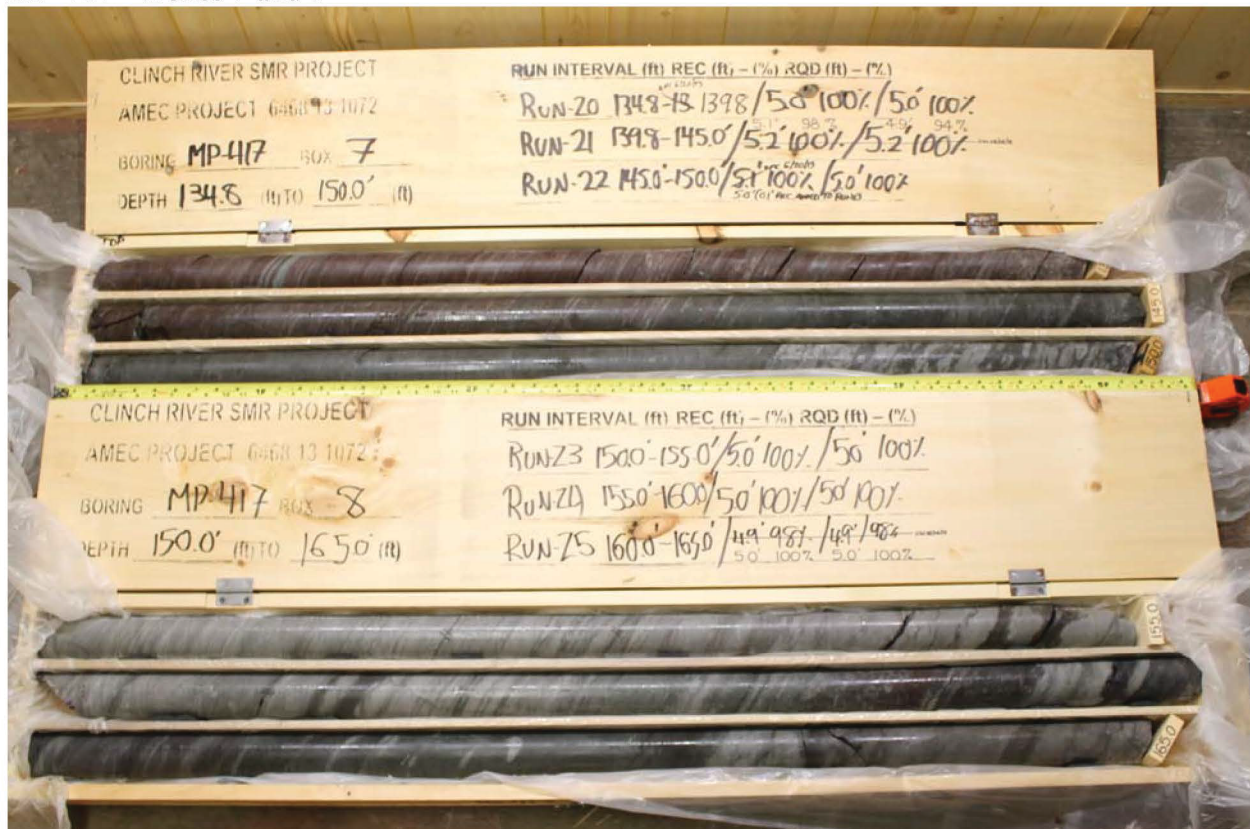 CLINCH RIVER SMR PROJECT
AMEC PROJECT 6468 13 1072
BORING MP-417 BOX 7
DEPTH 134.8 (ft) TO 150.0' (ft)
RUN INTERVAL (ft) REC (ft) – (%) RQD (ft) – (%)
RUN-20 134.8-13 139.8 / 5.0' 100% / 5.0' 100%
5.1' 98% 4.9' 94%
RUN-21 139.8-145.0' / 5.2' 100% / 5.2' 100%
RUN-22 145.0'-150.0' / 5.1' 100% / 5.0' 100%
TOP
145.0
150.0
CLINCH RIVER SMR PROJECT
AMEC PROJECT 6468 13 1072
BORING MP-417 BOX 8
DEPTH 150.0' (ft) TO 165.0' (ft)
RUN INTERVAL (ft) REC (ft) – (%) RQD (ft) – (%)
RUN-23 150.0'-155.0' / 5.0' 100% / 5.0' 100%
RUN-24 155.0'-160.0 / 5.0' 100% / 5.0' 100%
RUN-25 160.0'-165.0' / 4.9' 98% / 4.9' 98%
5.0' 100% 5.0' 100%
155.0
165.0